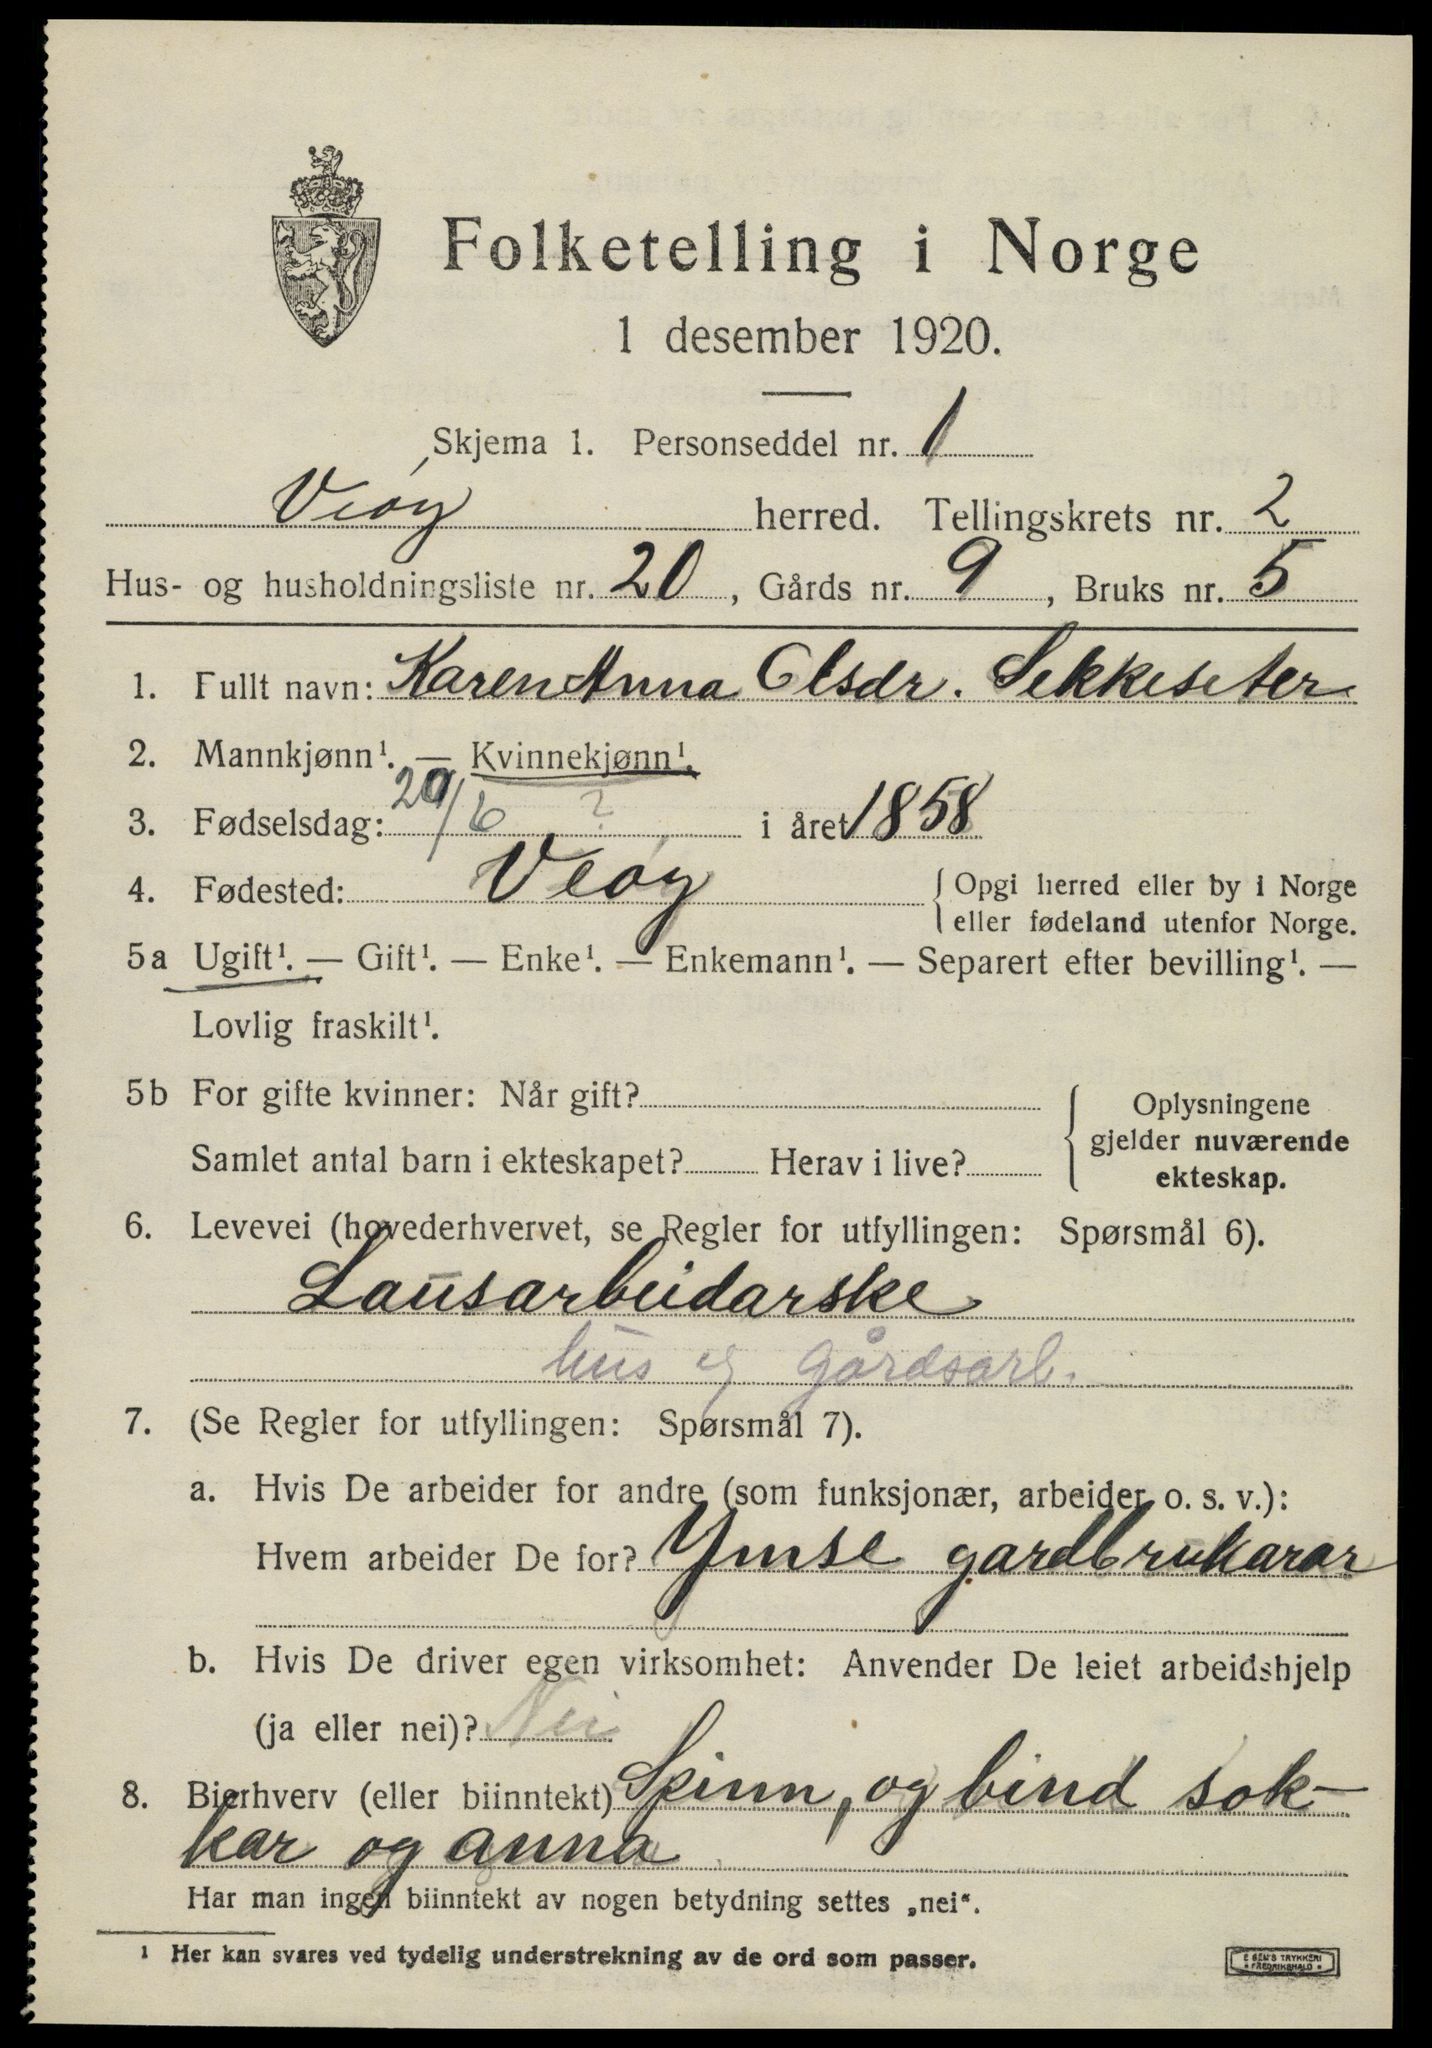 Folketelling i Norge
1 desember 1920.
Skjema 1. Personseddel nr. 1
Veøy herred. Tellingskrets nr. 2
Hus- og husholdningsliste nr. 20, Gårds nr. 9, Bruks nr. 5
1. Fullt navn: Karen Anna Olsdr. Sekkeseter
2. Mannkjønn¹. — Kvinnekjønn¹.
3. Fødselsdag: 20/6 ? i året 1858
4. Fødested: Veøy { Opgi herred eller by i Norge
eller fødeland utenfor Norge.
5a Ugift¹. — Gift¹. — Enke¹. — Enkemann¹. — Separert efter bevilling¹. —
Lovlig fraskilt¹.
5b For gifte kvinner: Når gift? { Oplysningene
gjelder nuværende
Samlet antal barn i ekteskapet? Herav i live?
ekteskap.
6. Levevei (hovederhvervet, se Regler for utfyllingen: Spørsmål 6).
Lausarbeidarske
hus og gårdsarb.
7. (Se Regler for utfyllingen: Spørsmål 7).
a. Hvis De arbeider for andre (som funksjonær, arbeider o. s. v.):
Hvem arbeider De for? Ymse gardbrukarar
b. Hvis De driver egen virksomhet: Anvender De leiet arbeidshjelp
(ja eller nei)? Nei
8. Bierhverv (eller biinntekt) Spinn, og bind sok-
kar og anna
Har man ingen biinntekt av nogen betydning settes „nei“.
¹ Her kan svares ved tydelig understrekning av de ord som passer.
E SEM'S TRYKKERI
FREDRIKSHALD